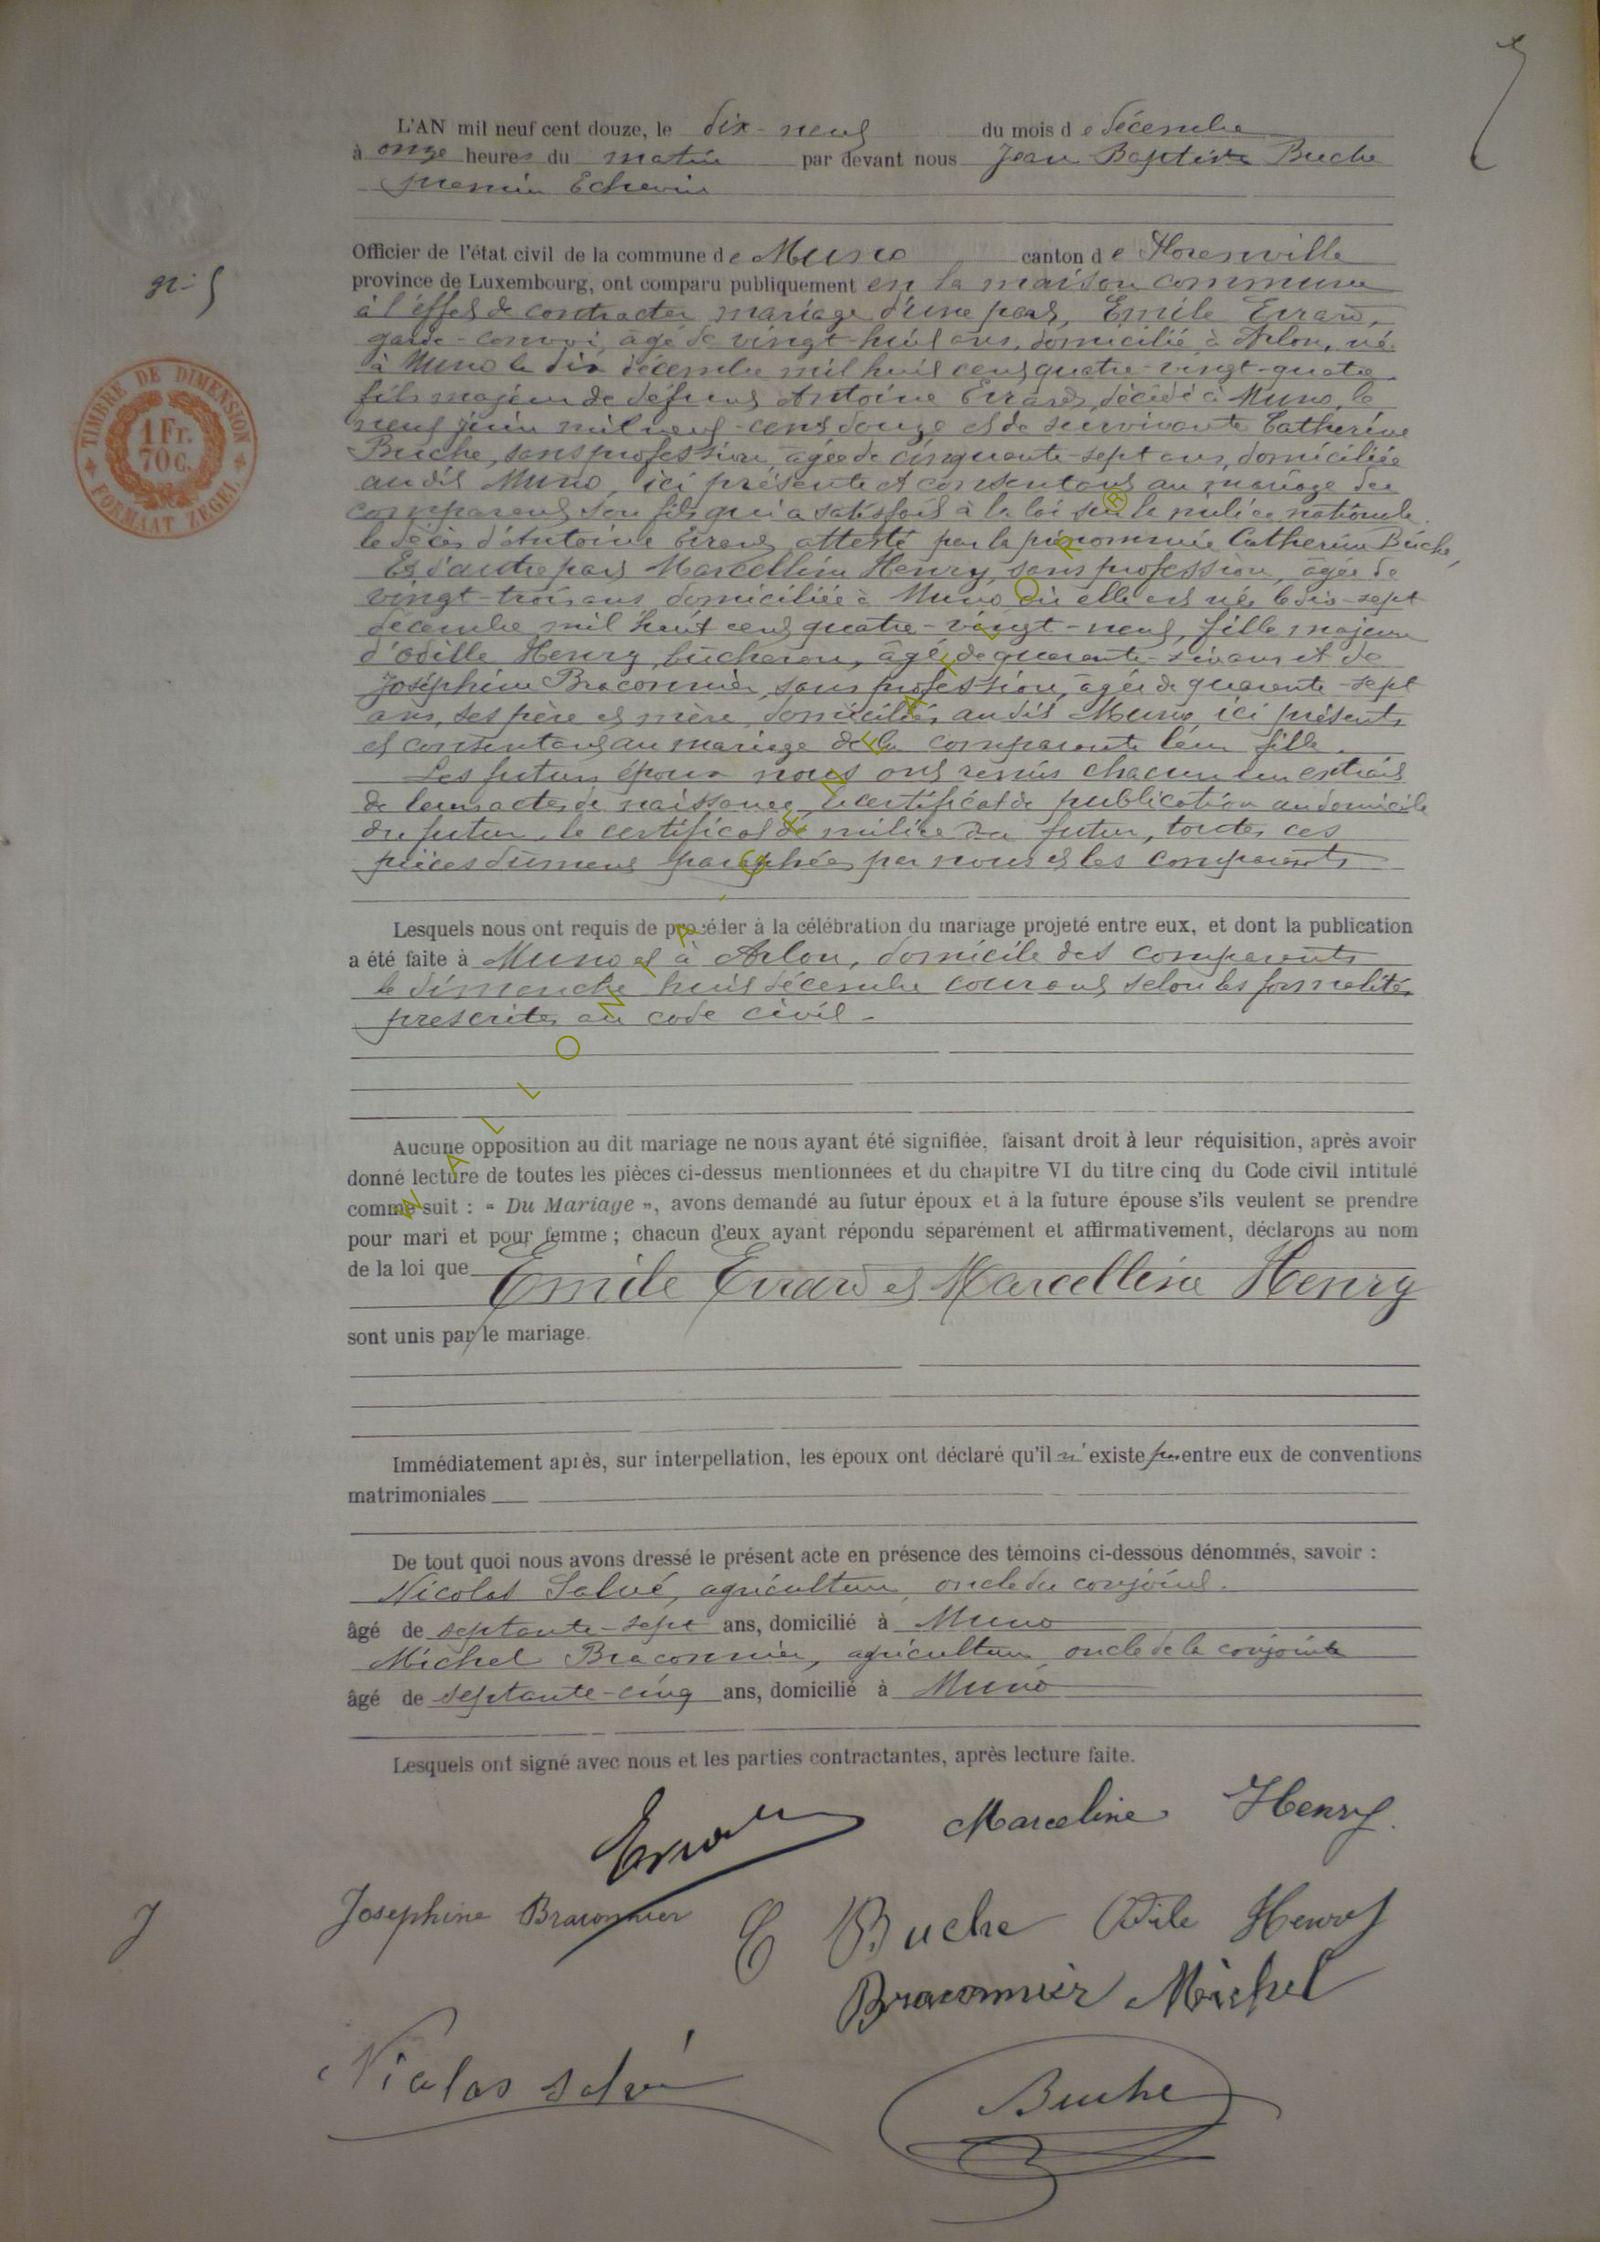 L'AN mil neuf cent douze, le dix-neuf du mois de décembre
à onze heures du matin par devant nous Jean Baptiste Buche
premier Echevin
Officier de l'état civil de la commune de Muno canton de Florenville
n: 5
province de Luxembourg, ont comparu publiquement en la maison commune
à l'effet de contracter mariage d'une part, Emile Errard,
garde-convoi, âgé de vingt-huit ans, domicilié à Arlon, né
à Muno le dix décembre mil huit cent quatre-vingt-quatre
fils majeur de défunt Antoine Errard, décédé à Muno, le
TIMBRE DE DIMENSION
1 Fr.
70 c.
FORMAAT ZEGEL
neuf juin mil neuf-cent douze et de survivante Catherine
Buche, sans profession, âgée de cinquante-sept ans, domiciliée
au dit Muno, ici présente et consentant au mariage du
comparant son fils qui a satisfait à la loi sur la milice nationale.
le décès d'Antoine Errard attesté par la prénommée Catherine Buche,
Et d'autre part Marcelline Henry, sans profession, âgée de
vingt-trois ans, domiciliée à Muno où elle est née le dix-sept
décembre mil huit cent quatre-vingt-neuf, fille majeure
d'Odille Henry, bûcheron, âgé de quarante-six ans et de
Joséphine Braconnier, sans profession, âgée de quarante-sept
ans, ses père et mère domiciliés au dit Muno, ici présents
et consentant au mariage de la comparante leur fille.
Les futurs époux nous ont remis chacun un extrait
de leurs actes de naissance, le certificat de publication au domicile
du futur, le certificat de milice du futur, toutes ces
pièces dûment paraphées par nous et les comparants
Lesquels nous ont requis de procéder à la célébration du mariage projeté entre eux, et dont la publication
a été faite à Muno et à Arlon, domicile des comparants
le dimanche huit décembre courant selon les formalités
prescrites au code civil.
Aucune opposition au dit mariage ne nous ayant été signifiée, faisant droit à leur réquisition, après avoir
donné lecture de toutes les pièces ci-dessus mentionnées et du chapitre VI du titre cinq du Code civil intitulé
comme suit : « Du Mariage », avons demandé au futur époux et à la future épouse s'ils veulent se prendre
pour mari et pour femme ; chacun d'eux ayant répondu séparément et affirmativement, déclarons au nom
de la loi que Emile Errard et Marcelline Henry
sont unis par le mariage.
Immédiatement après, sur interpellation, les époux ont déclaré qu'il n'existe pas entre eux de conventions
matrimoniales
De tout quoi nous avons dressé le présent acte en présence des témoins ci-dessous dénommés, savoir :
Nicolas Salvé, agriculteur, oncle du conjoint.
âgé de septante-sept ans, domicilié à Muno
Michel Braconnier, agriculteur, oncle de la conjointe
âgé de septante-cinq ans, domicilié à Muno
Lesquels ont signé avec nous et les parties contractantes, après lecture faite.
Errard Marceline Henry
Josephine Braconnier C Buche Odile Henry
Braconnier Michel
Nicolas Salvé
Buche
WALLONIA - GENEALOPRO ®